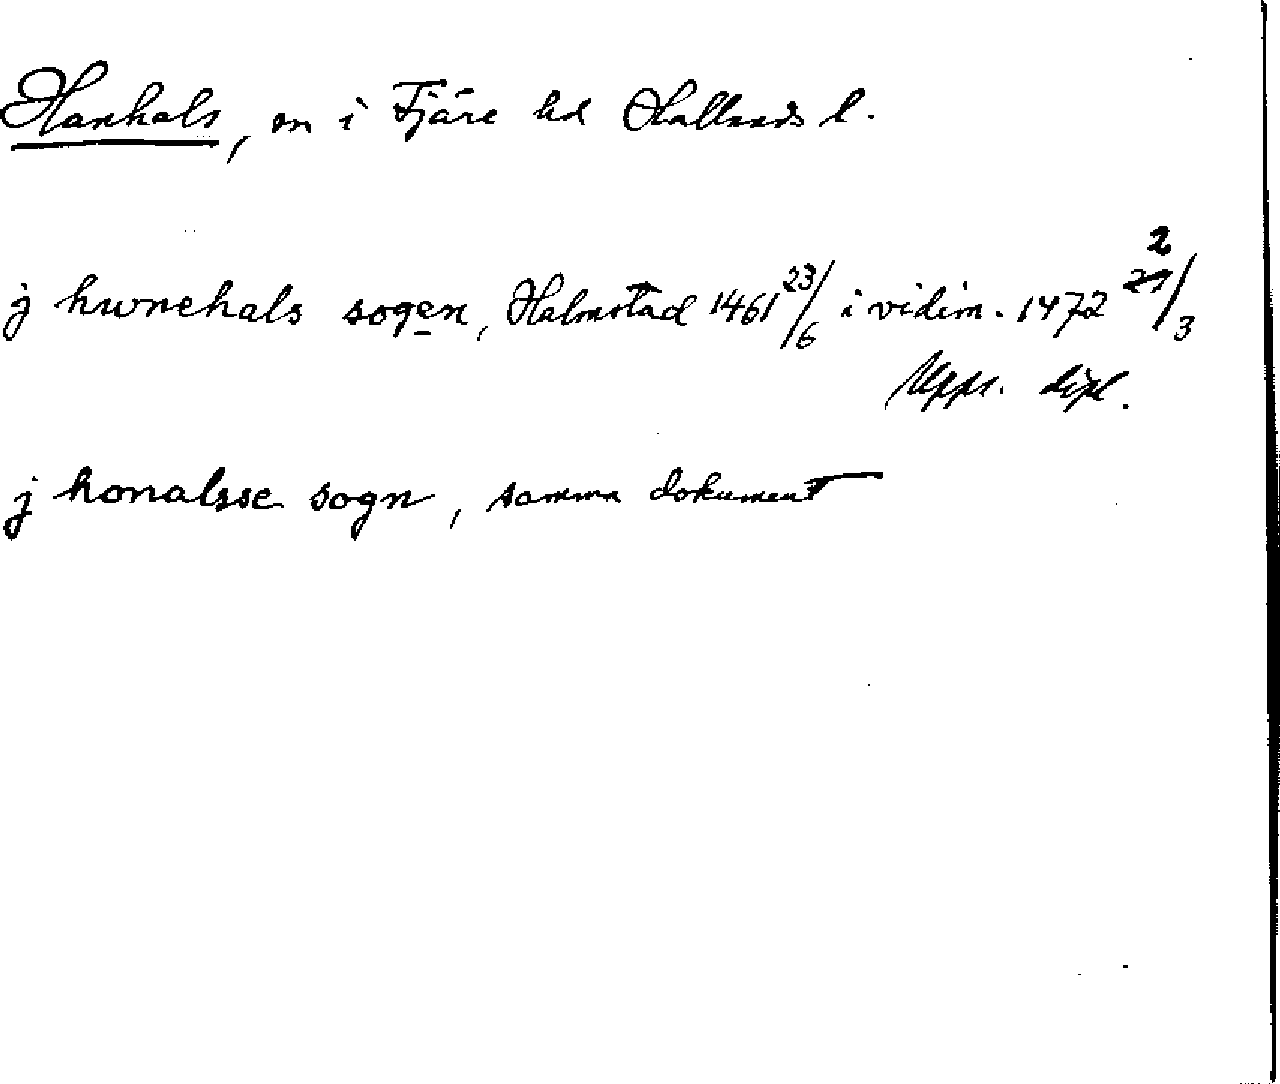 Hanhals, sn i Fjäre hd Hallands l.
j hwnehals sogen, Halmstad 1461 23/6 i vidim. 1472 2/3
Upps. dipl.
j honalsse sogn, samma dokument